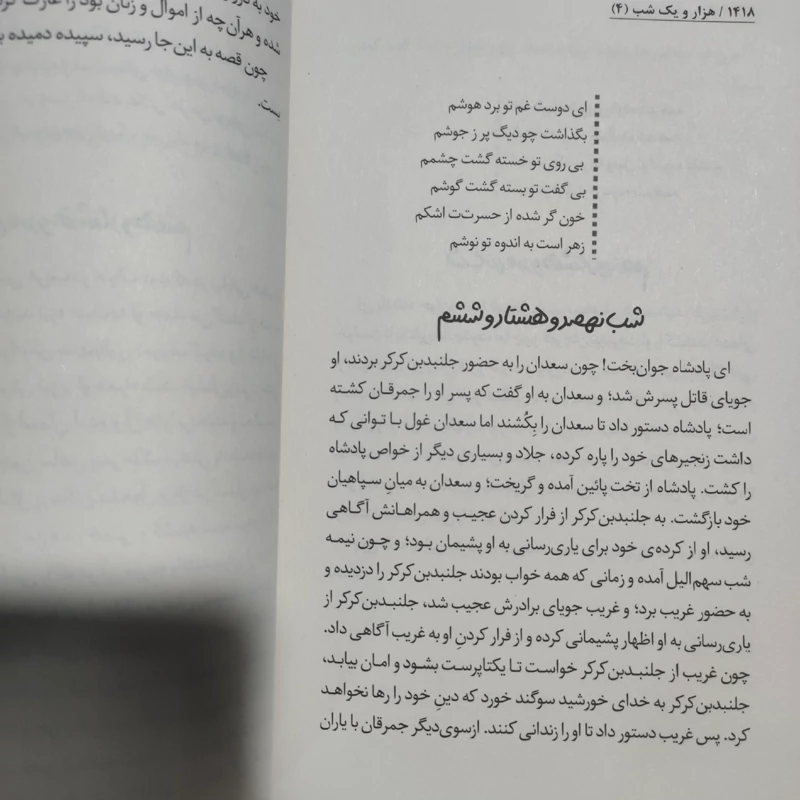 ۱۴۱۸ / هزار و یک شب (۴)
ای دوست غم تو برد هوشم
بگذاشت چو دیگ پر ز جوشم
بی روی تو خسته گشت چشمم
بی گفت تو بسته گشت گوشم
خون گر شده از حسرتت اشکم
زهر است به اندوه تو نوشم
شب نهصد و هشتاد و ششم
ای پادشاه جوان‌بخت! چون سعدان را به حضور جلنبدبن‌کرکر بردند، او
جویای قاتل پسرش شد؛ و سعدان به او گفت که پسر او را جمرقان کشته
است؛ پادشاه دستور داد تا سعدان را بِکُشند اما سعدان غول با توانی که
داشت زنجیرهای خود را پاره کرده، جلاد و بسیاری دیگر از خواص پادشاه
را کشت. پادشاه از تخت پائین آمده و گریخت؛ و سعدان به میانِ سپاهیان
خود بازگشت. به جلنبدبن‌کرکر از فرار کردن عجیب و همراهانش آگاهی
رسید، او از کرده‌ی خود برای یاری‌رسانی به او پشیمان بود؛ و چون نیمه
شب سهم‌الیل آمده و زمانی که همه خواب بودند جلنبدبن‌کرکر را دزدیده و
به حضور غریب برد؛ و غریب جویای برادرش عجیب شد، جلنبدبن‌کرکر از
یاری‌رسانی به او اظهار پشیمانی کرده و از فرار کردنِ او به غریب آگاهی داد.
چون غریب از جلنبدبن‌کرکر خواست تا یکتاپرست بشود و امان بیابد،
جلنبدبن‌کرکر به خدای خورشید سوگند خورد که دینِ خود را رها نخواهد
کرد. پس غریب دستور داد تا او را زندانی کنند. ازسوی‌دیگر جمرقان با یاران
خود به
شده و هرآن چه از اموال و زنان بود را غارت
چون قصه به این‌جا رسید، سپیده دمیده
بست.